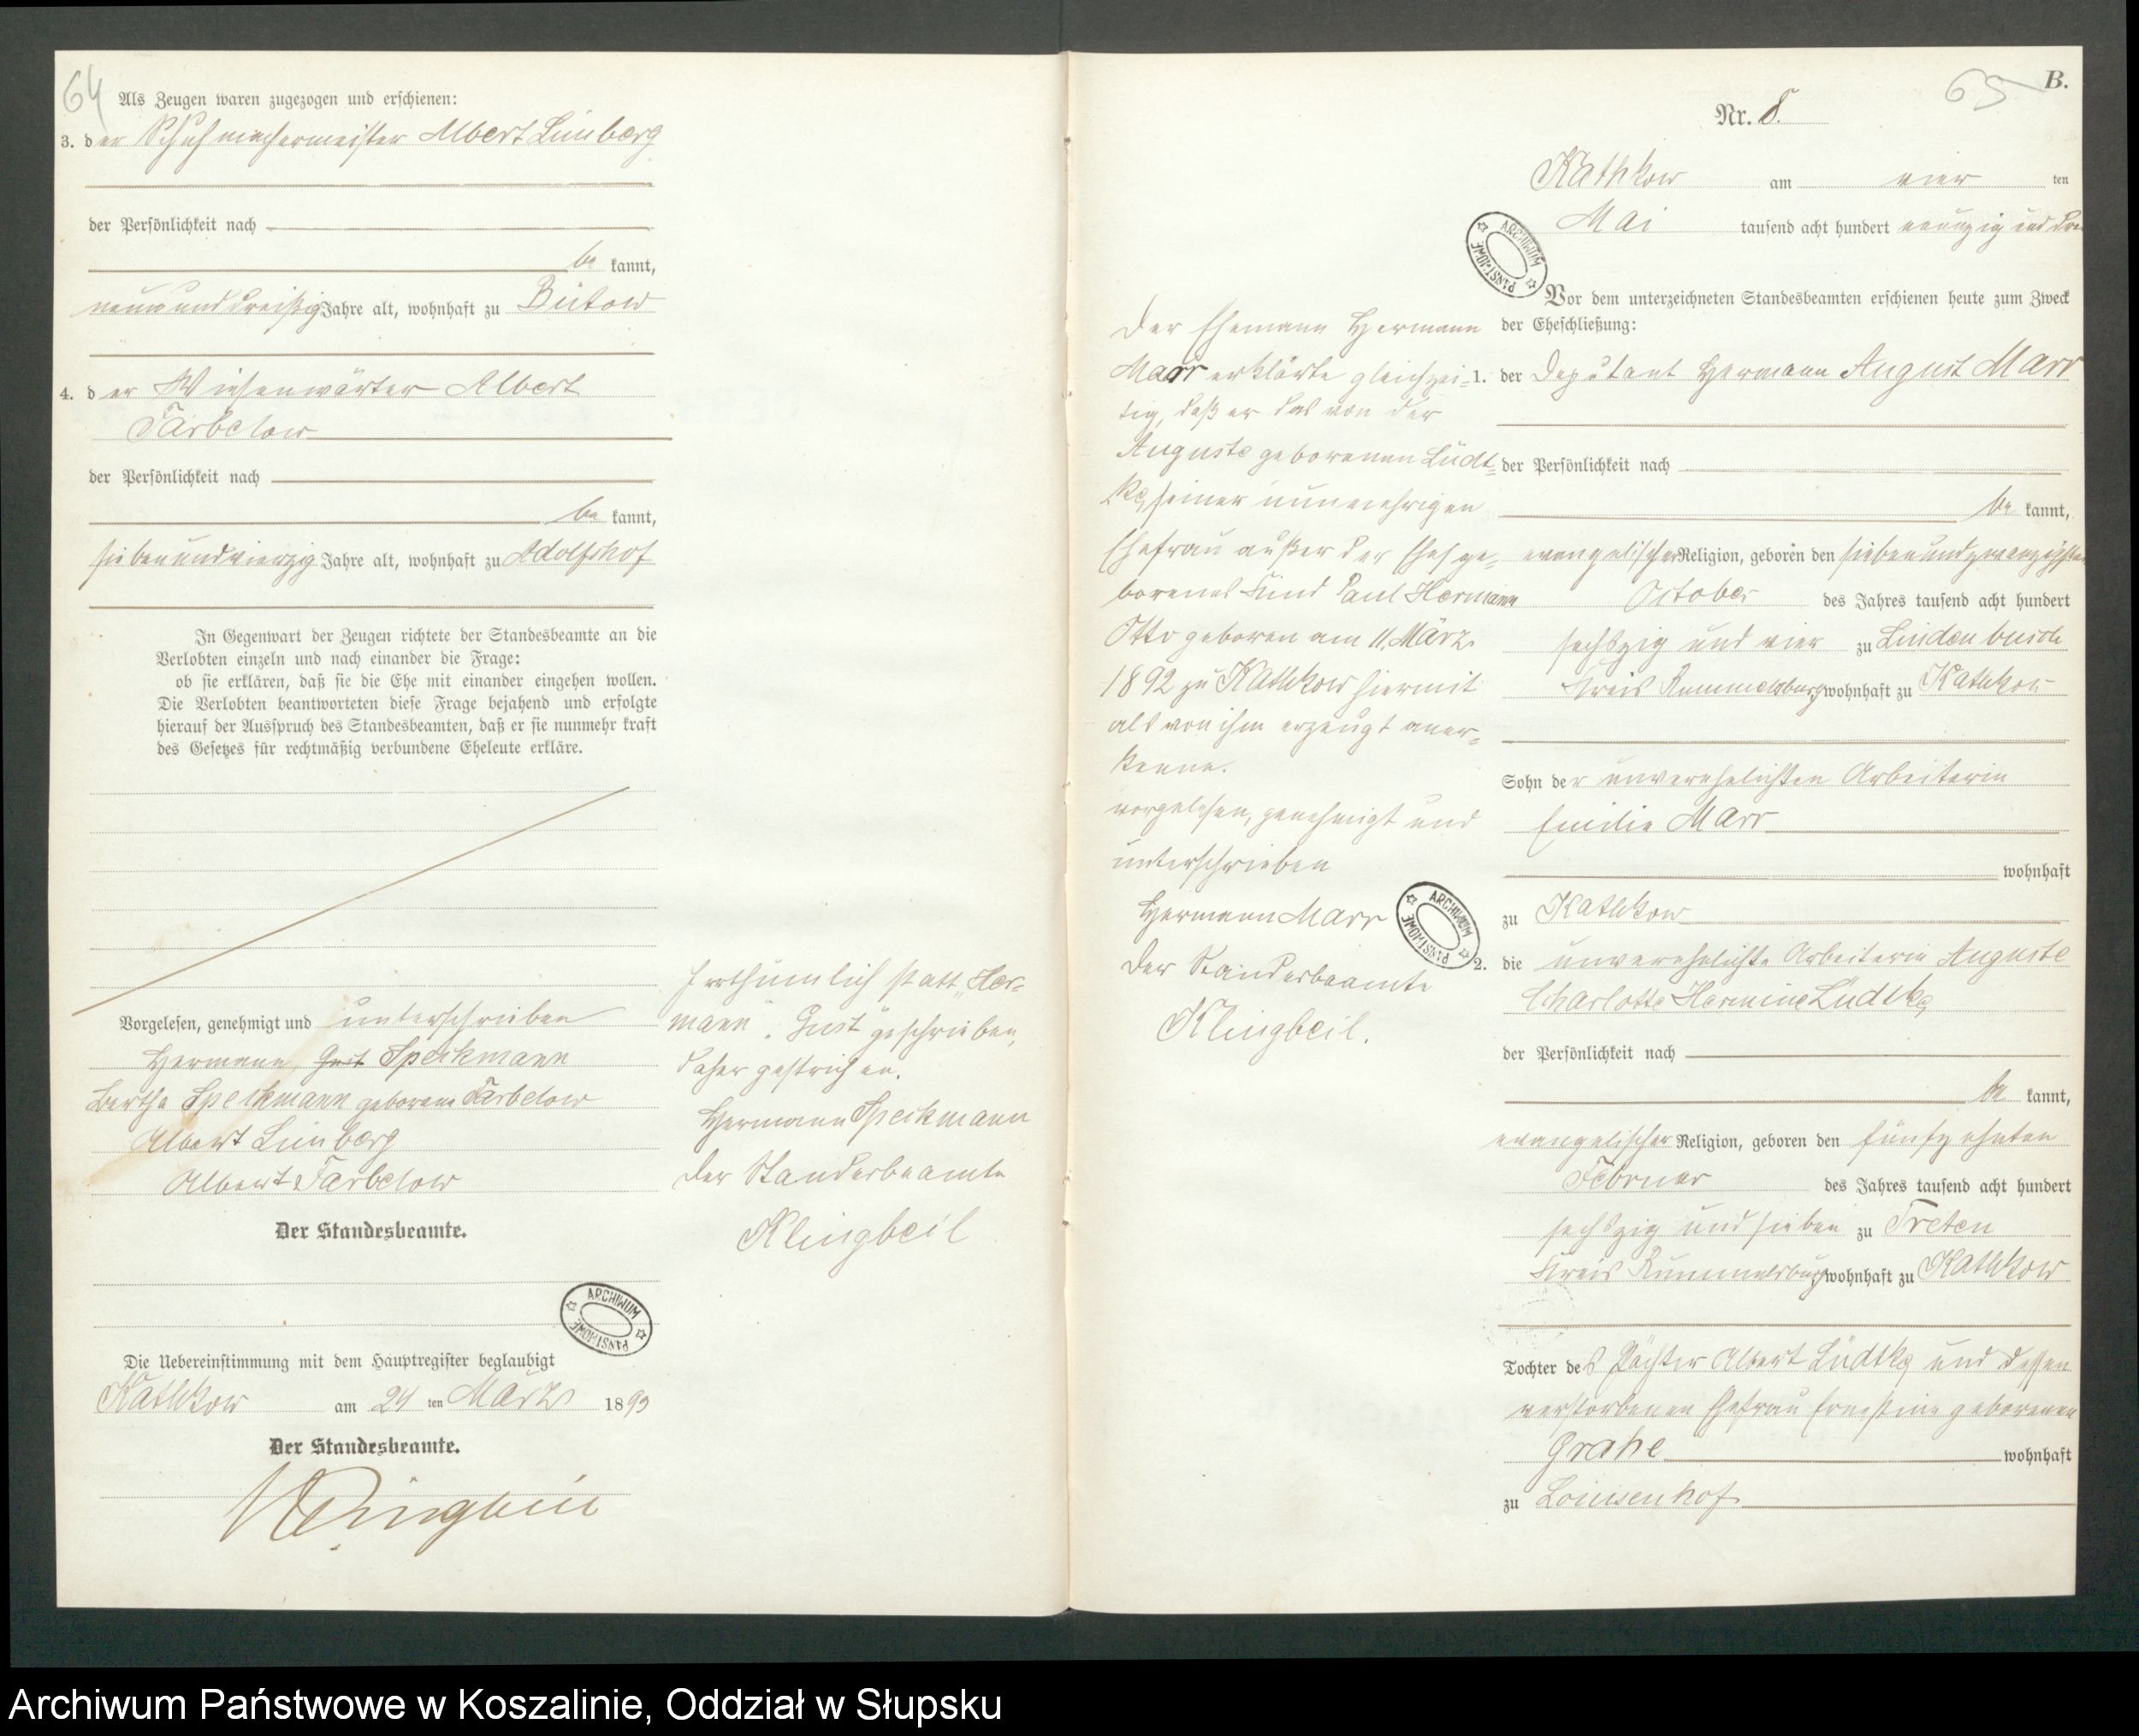 64
Als Zeugen waren zugezogen und erschienen:
3. der Schuhmachermeister Albert Limberg
der Persönlichkeit nach
be kannt,
neunund dreißig Jahre alt, wohnhaft zu Bütow
4. der Wiesenwärter Albert
Tarbelow
der Persönlichkeit nach
be kannt,
siebenundvierzig Jahre alt, wohnhaft zu Adolfshof
In Gegenwart der Zeugen richtete der Standesbeamte an die
Verlobten einzeln und nach einander die Frage:
ob sie erklären, daß sie die Ehe mit einander eingehen wollen.
Die Verlobten beantworteten diese Frage bejahend und erfolgte
hierauf der Ausspruch des Standesbeamten, daß er sie nunmehr kraft
des Gesetzes für rechtmäßig verbundene Eheleute erkläre.
Vorgelesen, genehmigt und unterschrieben
Hermann Gust Speckmann
Bertha Speckmann geborene Tarbelow
Albert Limberg
Albert Tarbelow
Der Standesbeamte.
Die Uebereinstimmung mit dem Hauptregister beglaubigt
Kathkow am 24 ten März 1893
Der Standesbeamte.
Klingbeil
Irrthümlich statt „Her=
mann". „Gust" geschrieben,
daher gestrichen.
Hermann Speckmann
Der Standesbeamte
Klingbeil
ARCHIWUM PAŃSTWOWE
65
B.
Nr. 8.
Kathkow am vier ten
Mai tausend acht hundert neunzig und drei
ARCHIWUM PAŃSTWOWE
Vor dem unterzeichneten Standesbeamten erschienen heute zum Zweck
der Eheschließung:
1. der Deputant Hermann August Marr
der Persönlichkeit nach
be kannt,
evangelischer Religion, geboren den siebenundzwanzigsten
October des Jahres tausend acht hundert
sechszig und vier zu Lindenbusch
Kreis Rummelsburg wohnhaft zu Kathkow
Sohn der unverehelichten Arbeiterin
Emilie Marr
wohnhaft
zu Kathkow
2. die unverehelichte Arbeiterin Auguste
Charlotte Hermine Lüdtke
der Persönlichkeit nach
be kannt,
evangelischer Religion, geboren den fünfzehnten
Februar des Jahres tausend acht hundert
sechszig und sieben zu Treten
Kreis Rummelsburg wohnhaft zu Kathkow
Tochter des Pächter Albert Lüdtke und dessen
verstorbenen Ehefrau Ernestine geborenen
Grahe wohnhaft
zu Louisenhof
Der Ehemann Hermann
Marr erklärte gleichzei=
tig, daß er das von der
Auguste geborenen Lüdt=
ke, seiner nunmehrigen
Ehefrau außer der Ehe ge=
borenes Kind Paul Hermann
Otto geboren am 11. März
1892 zu Kathkow hiermit
als von ihm erzeugt aner=
kenne.
vorgelesen, genehmigt und
unterschrieben
Hermann Marr
Der Standesbeamte
Klingbeil.
ARCHIWUM PAŃSTWOWE
Archiwum Państwowe w Koszalinie, Oddział w Słupsku